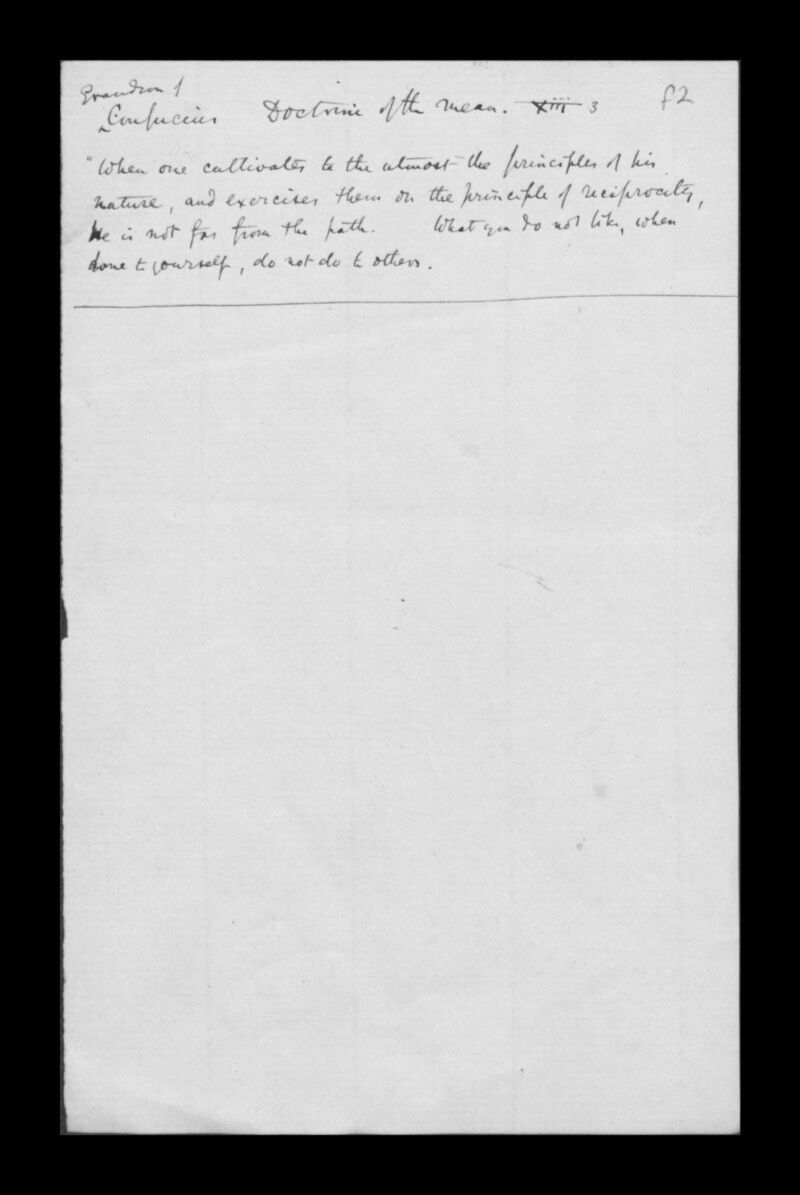 Grandson of
Confucius Doctrine of the mean. xiii 3 f2
"When one cultivates to the utmost the principles of his
nature, and exercises them on the principle of reciprocity,
he is not far from the path. What you do not like, when
done to yourself, do not do to others.